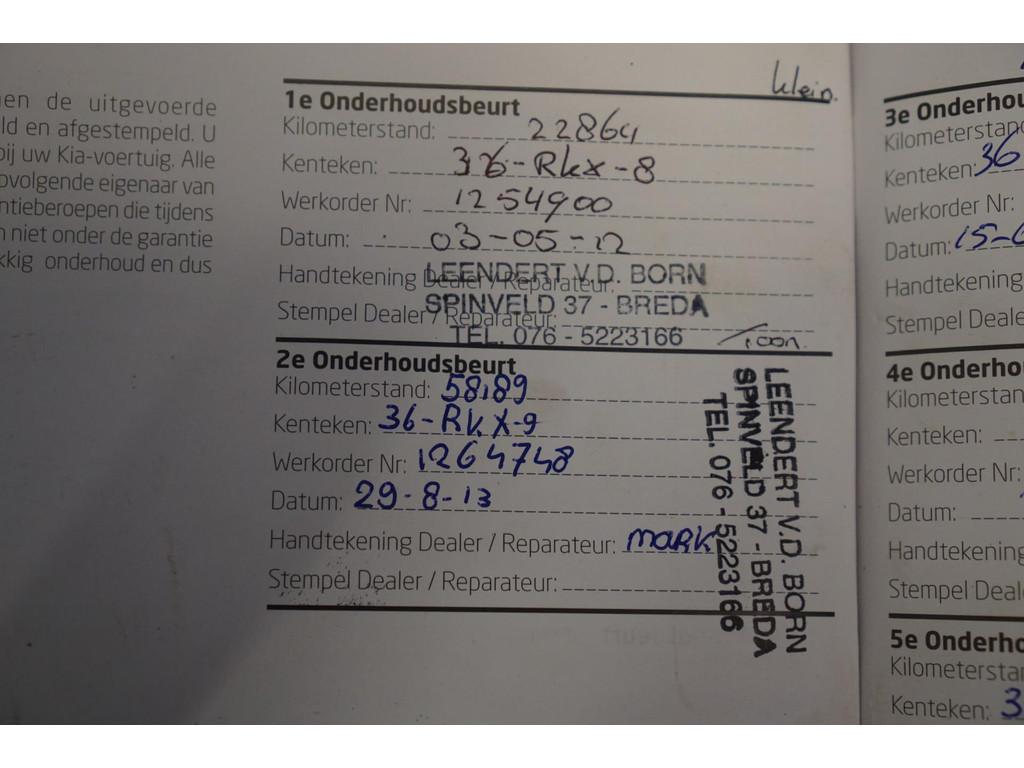 en de uitgevoerde
ld en afgestempeld. U
bij uw Kia-voertuig. Alle
pvolgende eigenaar van
ntieberoepen die tijdens
n niet onder de garantie
kkig onderhoud en dus
klein.
1e Onderhoudsbeurt
Kilometerstand: 22864
Kenteken: 36-RkX-8
Werkorder Nr: 1254900
Datum: 03-05-12
Handtekening Dealer / Reparateur:
Stempel Dealer / Reparateur:
LEENDERT V.D. BORN
SPINVELD 37 - BREDA
TEL. 076 - 5223166
Toon.
2e Onderhoudsbeurt
Kilometerstand: 58189
Kenteken: 36-RKX-9
Werkorder Nr: 1264748
Datum: 29-8-13
Handtekening Dealer / Reparateur: MARK
Stempel Dealer / Reparateur:
LEENDERT V.D. BORN
SPINVELD 37 - BREDA
TEL. 076 - 5223166
3e Onderhou
Kilometerstand
Kenteken: 36
Werkorder Nr:
Datum: 15-0
Handtekening
Stempel Deale
4e Onderho
Kilometerstan
Kenteken:
Werkorder Nr:
Datum:
Handtekening
Stempel Deal
5e Onderho
Kilometersta
Kenteken: 3